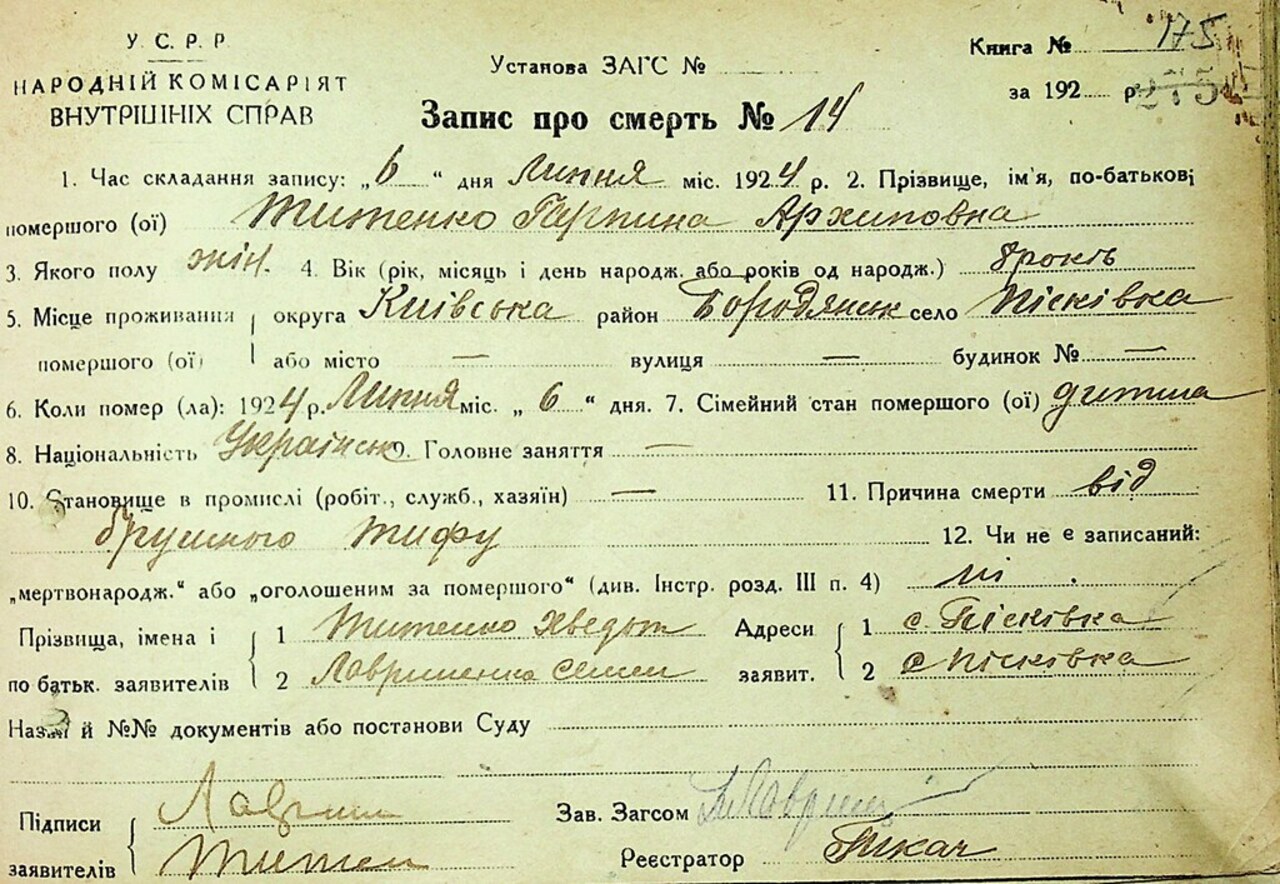 У. С. Р. Р
НАРОДНІЙ КОМІСАРІЯТ
ВНУТРІШНІХ СПРАВ
Установа ЗАГС №
Книга № 175
за 192 р. 275
Запис про смерть № 14
1. Час складання запису: „6“ дня Липня міс. 1924 р. 2. Прізвище, ім'я, по-батькові
помершого (ої) Титенко Гарпина Архиповна
3. Якого полу жін. 4. Вік (рік, місяць і день народж. або років од народж.) 8 років
5. Місце проживання округа Київська район Бородянськ село Пісківка
помершого (ої) або місто — вулиця — будинок № —
6. Коли помер (ла): 1924 р. Липня міс. „6“ дня. 7. Сімейний стан помершого (ої) дитина
8. Національність Українськ 9. Головне заняття —
10. Становище в промислі (робіт., служб., хазяїн) — 11. Причина смерти від
брушного тифу 12. Чи не є записаний:
„мертвонародж.“ або „оголошеним за помершого“ (див. Інстр. розд. III п. 4) ні.
Прізвища, імена і 1 Титенко Хведот Адреси 1 с. Пісківка
по батьк. заявителів 2 Лавриненко Семен заявит. 2 с Пісківка
Назви й №№ документів або постанови Суду
Підписи
Зав. Загсом
заявителів Титен Реєстратор Ткач